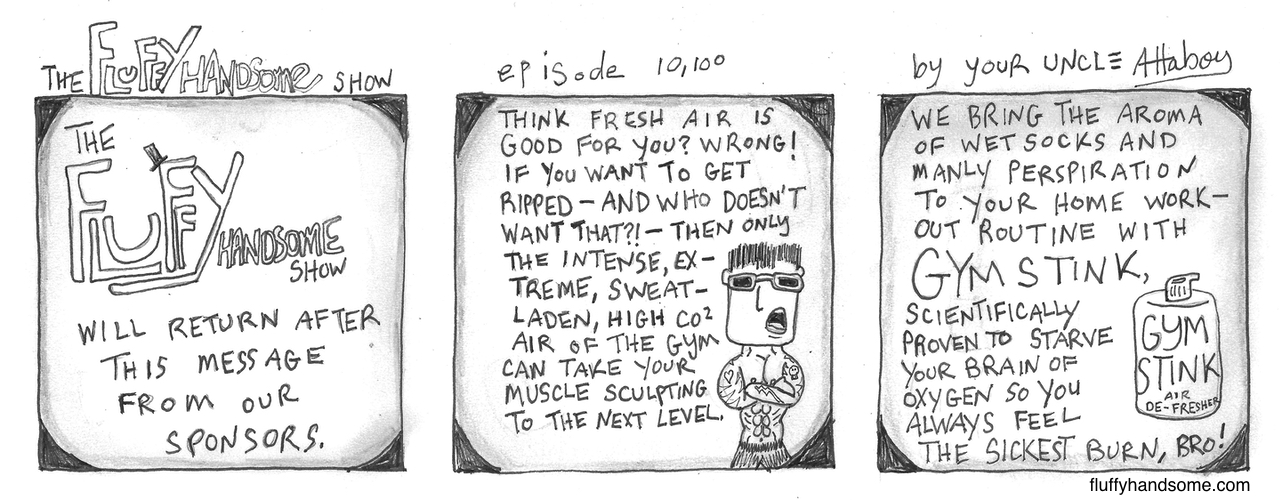 THE FLUFFY HANDSOME SHOW
episode 10,100
by YOUR UNCLE Attaboy
THE
FLUFFY
HANDSOME
SHOW
WILL RETURN AFTER
THIS MESSAGE
FROM OUR
SPONSORS.
THINK FRESH AIR IS
GOOD FOR YOU? WRONG!
IF YOU WANT TO GET
RIPPED – AND WHO DOESN'T
WANT THAT?! – THEN ONLY
THE INTENSE, EX–
TREME, SWEAT–
LADEN, HIGH CO²
AIR OF THE GYM
CAN TAKE YOUR
MUSCLE SCULPTING
TO THE NEXT LEVEL.
WE BRING THE AROMA
OF WET SOCKS AND
MANLY PERSPIRATION
TO YOUR HOME WORK–
OUT ROUTINE WITH
GYM STINK,
SCIENTIFICALLY
PROVEN TO STARVE
YOUR BRAIN OF
OXYGEN SO YOU
ALWAYS FEEL
THE SICKEST BURN, BRO!
GYM
STINK
AIR
DE-FRESHER
fluffyhandsome.com